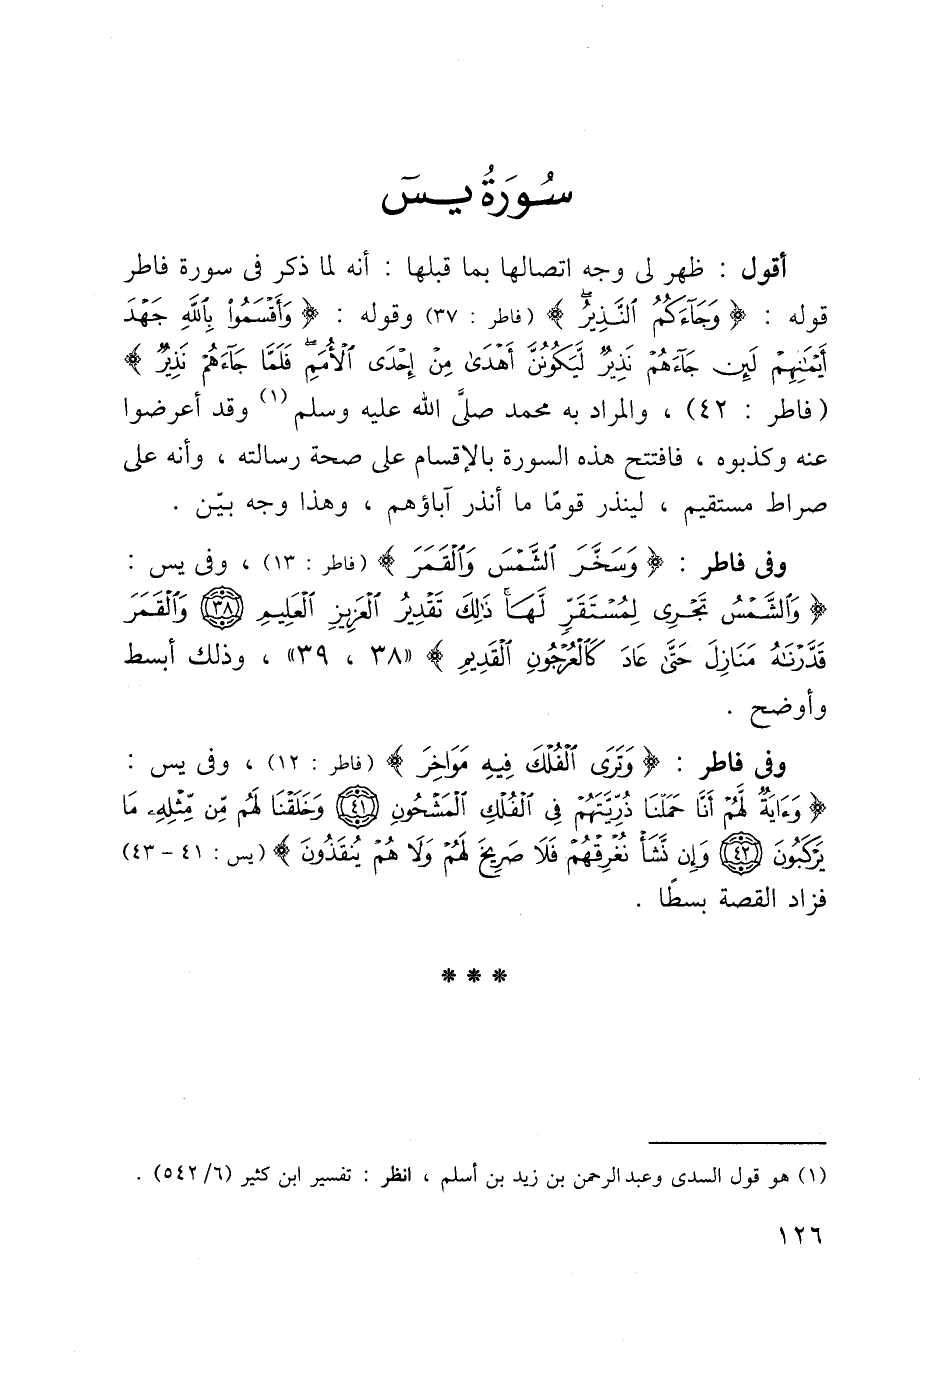 سُورَةُ يسٓ
أقول : ظهر لى وجه اتصالها بما قبلها : أنه لما ذكر فى سورة فاطر
قوله : ﴿ وَجَآءَكُمُ ٱلنَّذِيرُۖ ﴾ (فاطر : ٣٧) وقوله : ﴿ وَأَقۡسَمُواْ بِٱللَّهِ جَهۡدَ
أَيۡمَٰنِهِمۡ لَئِن جَآءَهُمۡ نَذِيرٞ لَّيَكُونُنَّ أَهۡدَىٰ مِنۡ إِحۡدَى ٱلۡأُمَمِۖ فَلَمَّا جَآءَهُمۡ نَذِيرٞ ﴾
(فاطر : ٤٢) ، والمراد به محمد صلَّى الله عليه وسلم (١) وقد أعرضوا
عنه وكذبوه ، فافتتح هذه السورة بالإقسام على صحة رسالته ، وأنه على
صراط مستقيم ، لينذر قومًا ما أنذر آباؤهم ، وهذا وجه بيّن .
وفى فاطر : ﴿ وَسَخَّرَ ٱلشَّمۡسَ وَٱلۡقَمَرَ ﴾ (فاطر : ١٣) ، وفى يس :
﴿ وَٱلشَّمۡسُ تَجۡرِى لِمُسۡتَقَرّٖ لَّهَاۚ ذَٰلِكَ تَقۡدِيرُ ٱلۡعَزِيزِ ٱلۡعَلِيمِ ٣٨ وَٱلۡقَمَرَ
قَدَّرۡنَٰهُ مَنَازِلَ حَتَّىٰ عَادَ كَٱلۡعُرۡجُونِ ٱلۡقَدِيمِ ﴾ «٣٨ ، ٣٩» ، وذلك أبسط
وأوضح .
وفى فاطر : ﴿ وَتَرَى ٱلۡفُلۡكَ فِيهِ مَوَاخِرَ ﴾ (فاطر : ١٢) ، وفى يس :
﴿ وَءَايَةٞ لَّهُمۡ أَنَّا حَمَلۡنَا ذُرِّيَّتَهُمۡ فِى ٱلۡفُلۡكِ ٱلۡمَشۡحُونِ ٤١ وَخَلَقۡنَا لَهُم مِّن مِّثۡلِهِۦ مَا
يَرۡكَبُونَ ٤٢ وَإِن نَّشَأۡ نُغۡرِقۡهُمۡ فَلَا صَرِيخَ لَهُمۡ وَلَا هُمۡ يُنقَذُونَ ﴾ (يس : ٤١ - ٤٣)
فزاد القصة بسطًا .
* * *
(١) هو قول السدى وعبد الرحمن بن زيد بن أسلم ، انظر : تفسير ابن كثير (٦/ ٥٤٢) .
١٢٦